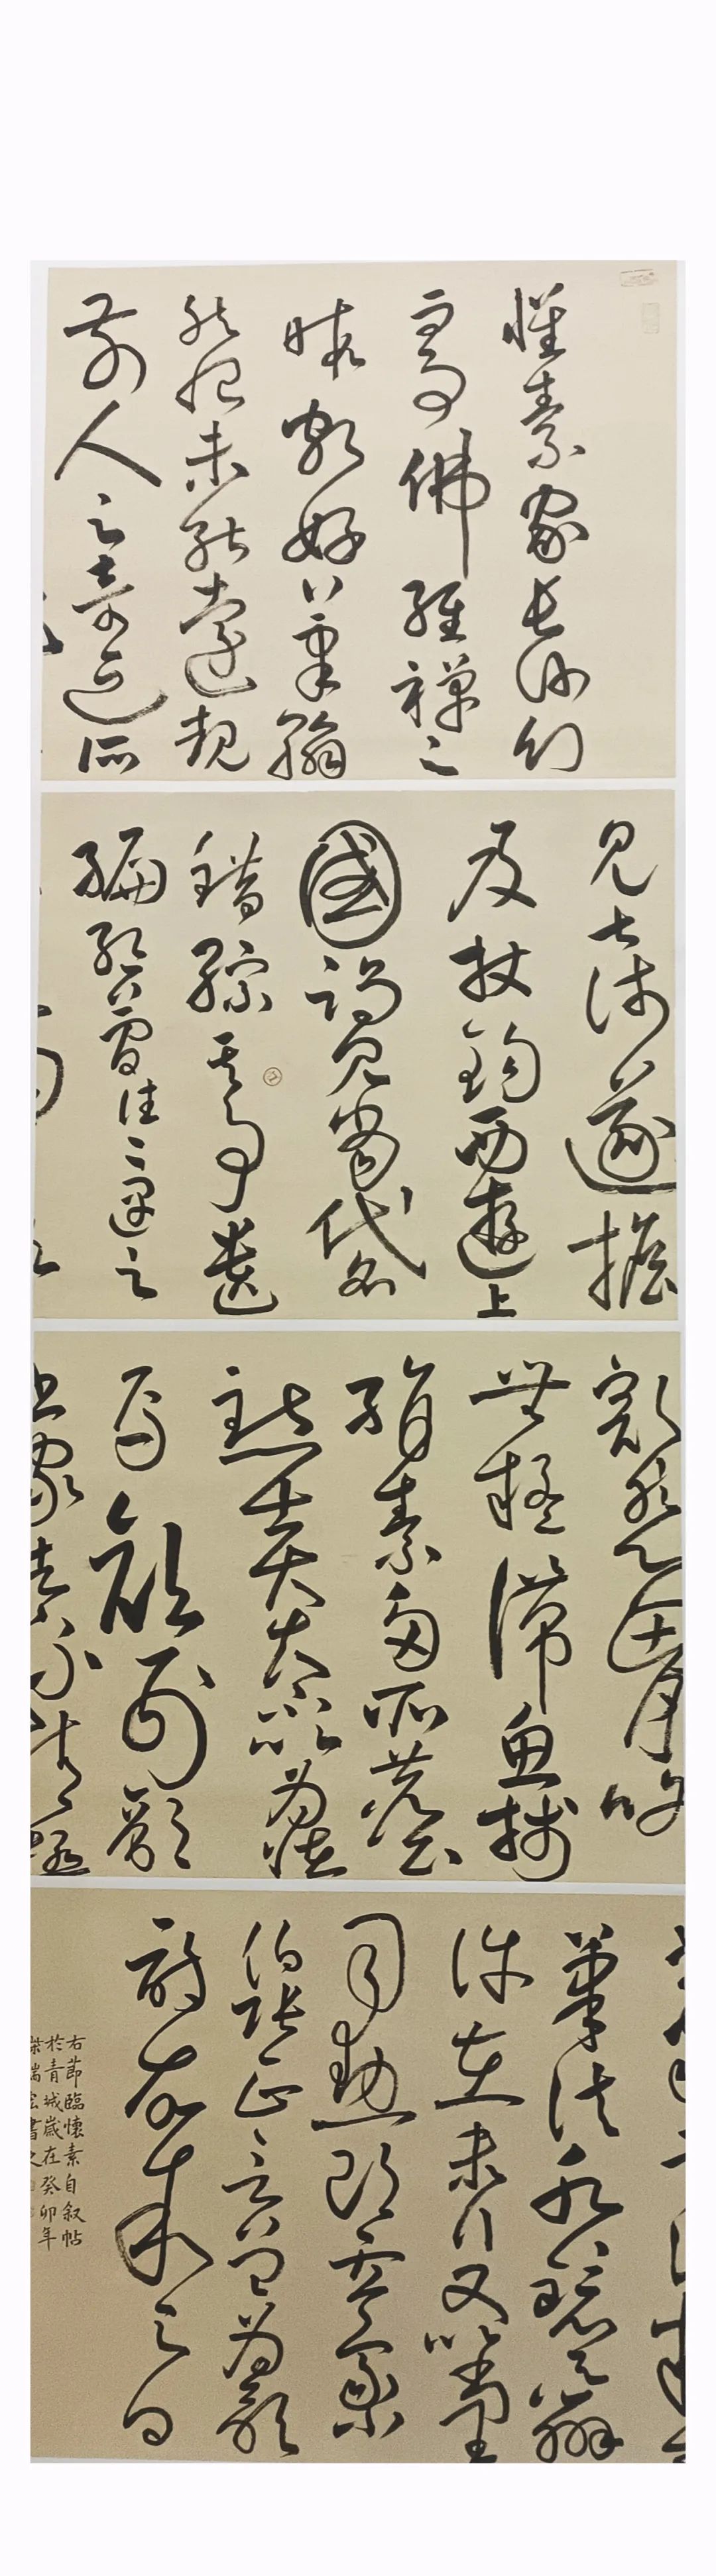 懷素家長沙幼
而事佛經禪之
暇頗好筆翰
然恨未能遠覩
前人之奇迹所
見甚淺遂擔
笈杖錫西遊上
國謁見當代名
錯綜其事遺
編絕簡往往遇之
豁然心胸略
無疑滯魚牋
絹素多所塵
點士大夫不以為怪
焉顏刑部
書家者流精極
筆法水鏡之辨
許在末行又以尚書
司勳郎盧象小
宗伯張正言曾為歌
詩故叙之曰
右節臨懷素自叙帖
於青城歲在癸卯年